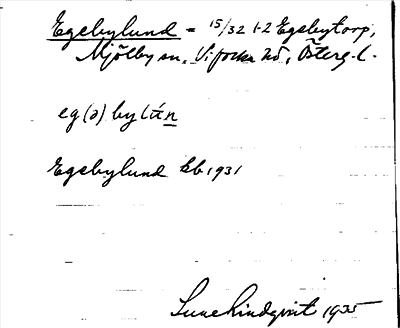 Egebylund = 15/32 1-2 Egebytorp,
Mjölby sn, Vifolka hd, Österg. l.
eg(ə)bylún
Egebylund kb 1931
Sune Lindqvist 1935